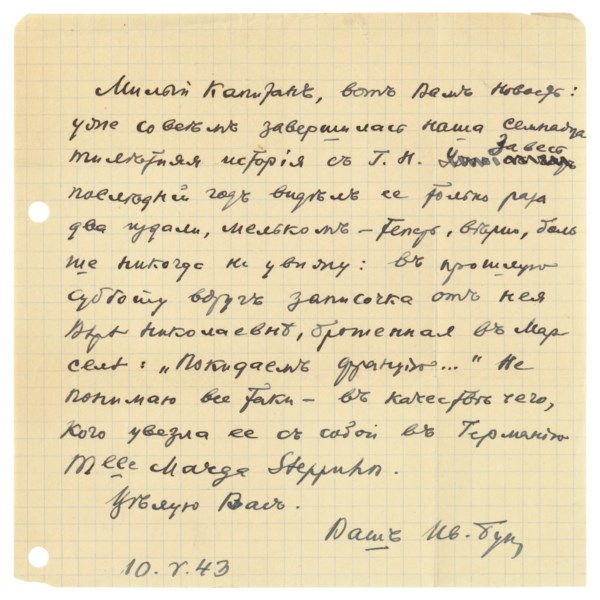 Милый Капитанъ, вотъ Вамъ новость:
уже совсѣмъ завершилась наша семнадца
тилѣтняя исторія съ Г. Н. За весь
послѣдній годъ видѣлъ ее только раза
два издали, мелькомъ — теперь, вѣрно, боль
ше никогда не увижу: въ прошлую
субботу вдругъ записочка отъ нея
Вѣрѣ Николаевнѣ, брошенная въ Мар
селѣ: „Покидаемъ Францію..." Не
понимаю все таки — въ качествѣ чего,
кого увезла ее съ собой въ Германію
Mlle Marga Steppuhn.
Цѣлую Васъ.
Вашъ Ив. Бун
10.V.43